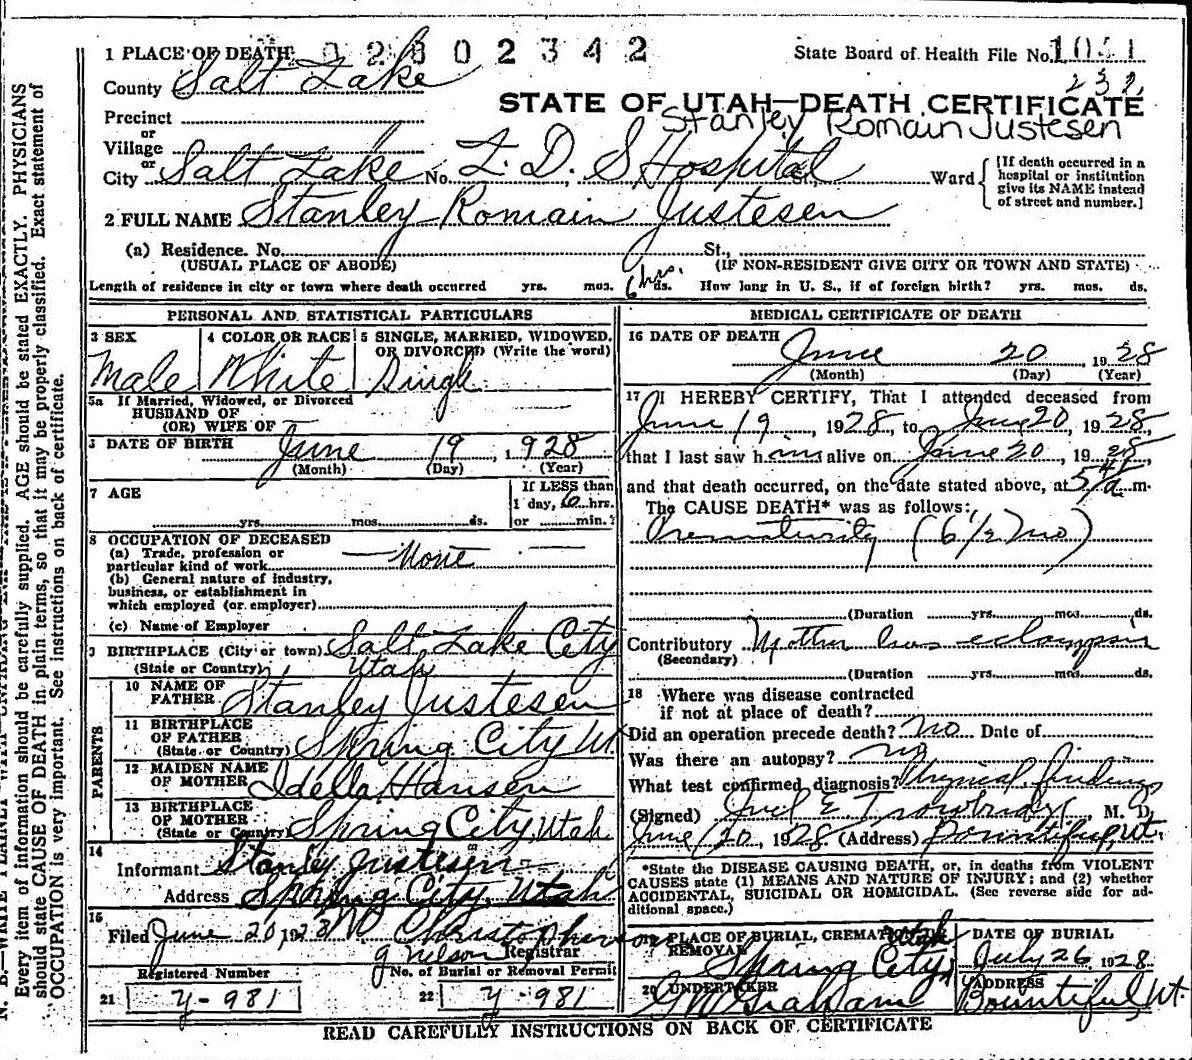 1 PLACE OF DEATH 02802342 State Board of Health File No. 1041
County Salt Lake 232
STATE OF UTAH—DEATH CERTIFICATE
Precinct
Stanley Romain Justesen
or
Village
or
City Salt Lake No. L. D. S Hospital St., Ward [If death occurred in a hospital or institution give its NAME instead of street and number.]
2 FULL NAME Stanley Romain Justesen
(a) Residence. No. St.,
(USUAL PLACE OF ABODE) (IF NON-RESIDENT GIVE CITY OR TOWN AND STATE)
Length of residence in city or town where death occurred yrs. mos. 6 hrs. ds. How long in U. S., if of foreign birth? yrs. mos. ds.
PERSONAL AND STATISTICAL PARTICULARS
3 SEX 4 COLOR OR RACE 5 SINGLE, MARRIED, WIDOWED, OR DIVORCED (Write the word)
Male White Single
5a If Married, Widowed, or Divorced
HUSBAND OF
(OR) WIFE OF
DATE OF BIRTH June 19, 1928
(Month) (Day) (Year)
7 AGE If LESS than
1 day, 6 hrs.
yrs. mos. ds. or min.?
8 OCCUPATION OF DECEASED
(a) Trade, profession or
particular kind of work None
(b) General nature of industry,
business, or establishment in
which employed (or employer)
(c) Name of Employer
9 BIRTHPLACE (City or town) Salt Lake City
(State or Country) Utah
PARENTS
10 NAME OF
FATHER Stanley Justesen
11 BIRTHPLACE
OF FATHER
(State or Country) Spring City Ut.
12 MAIDEN NAME
OF MOTHER Idella Hansen
13 BIRTHPLACE
OF MOTHER
(State or Country) Spring City, Utah
14
Informant Stanley Justesen
Address Spring City, Utah
15
Filed June 20, 1928 Christopherson
G Nelson Registrar
Registered Number No. of Burial or Removal Permit
21 y-981 22 y-981
MEDICAL CERTIFICATE OF DEATH
16 DATE OF DEATH
June 20, 1928
(Month) (Day) (Year)
17 I HEREBY CERTIFY, That I attended deceased from
June 19, 1928, to June 20, 1928,
that I last saw him alive on June 20, 1928,
and that death occurred, on the date stated above, at a m.
The CAUSE DEATH* was as follows:
Prematurity (6 1/2 mo)
(Duration yrs. mos. ds.
Contributory Mother has eclampsia
(Secondary)
(Duration yrs. mos. ds.
18 Where was disease contracted
if not at place of death?
Did an operation precede death? No Date of
Was there an autopsy? no
What test confirmed diagnosis? Physical findings
(Signed) E. Trowbridge M. D.
June 20, 1928 (Address) Bountiful, Ut.
*State the DISEASE CAUSING DEATH, or, in deaths from VIOLENT
CAUSES state (1) MEANS AND NATURE OF INJURY; and (2) whether
ACCIDENTAL, SUICIDAL OR HOMICIDAL. (See reverse side for ad-
ditional space.)
19 PLACE OF BURIAL, CREMATION, REMOVAL DATE OF BURIAL
Spring City, Utah July 26 1928
20 UNDERTAKER ADDRESS
G W Graham Bountiful, Ut.
READ CAREFULLY INSTRUCTIONS ON BACK OF CERTIFICATE
Every item of information should be carefully supplied. AGE should be stated EXACTLY. PHYSICIANS
should state CAUSE OF DEATH in plain terms, so that it may be properly classified. Exact statement of
OCCUPATION is very important. See instructions on back of certificate.